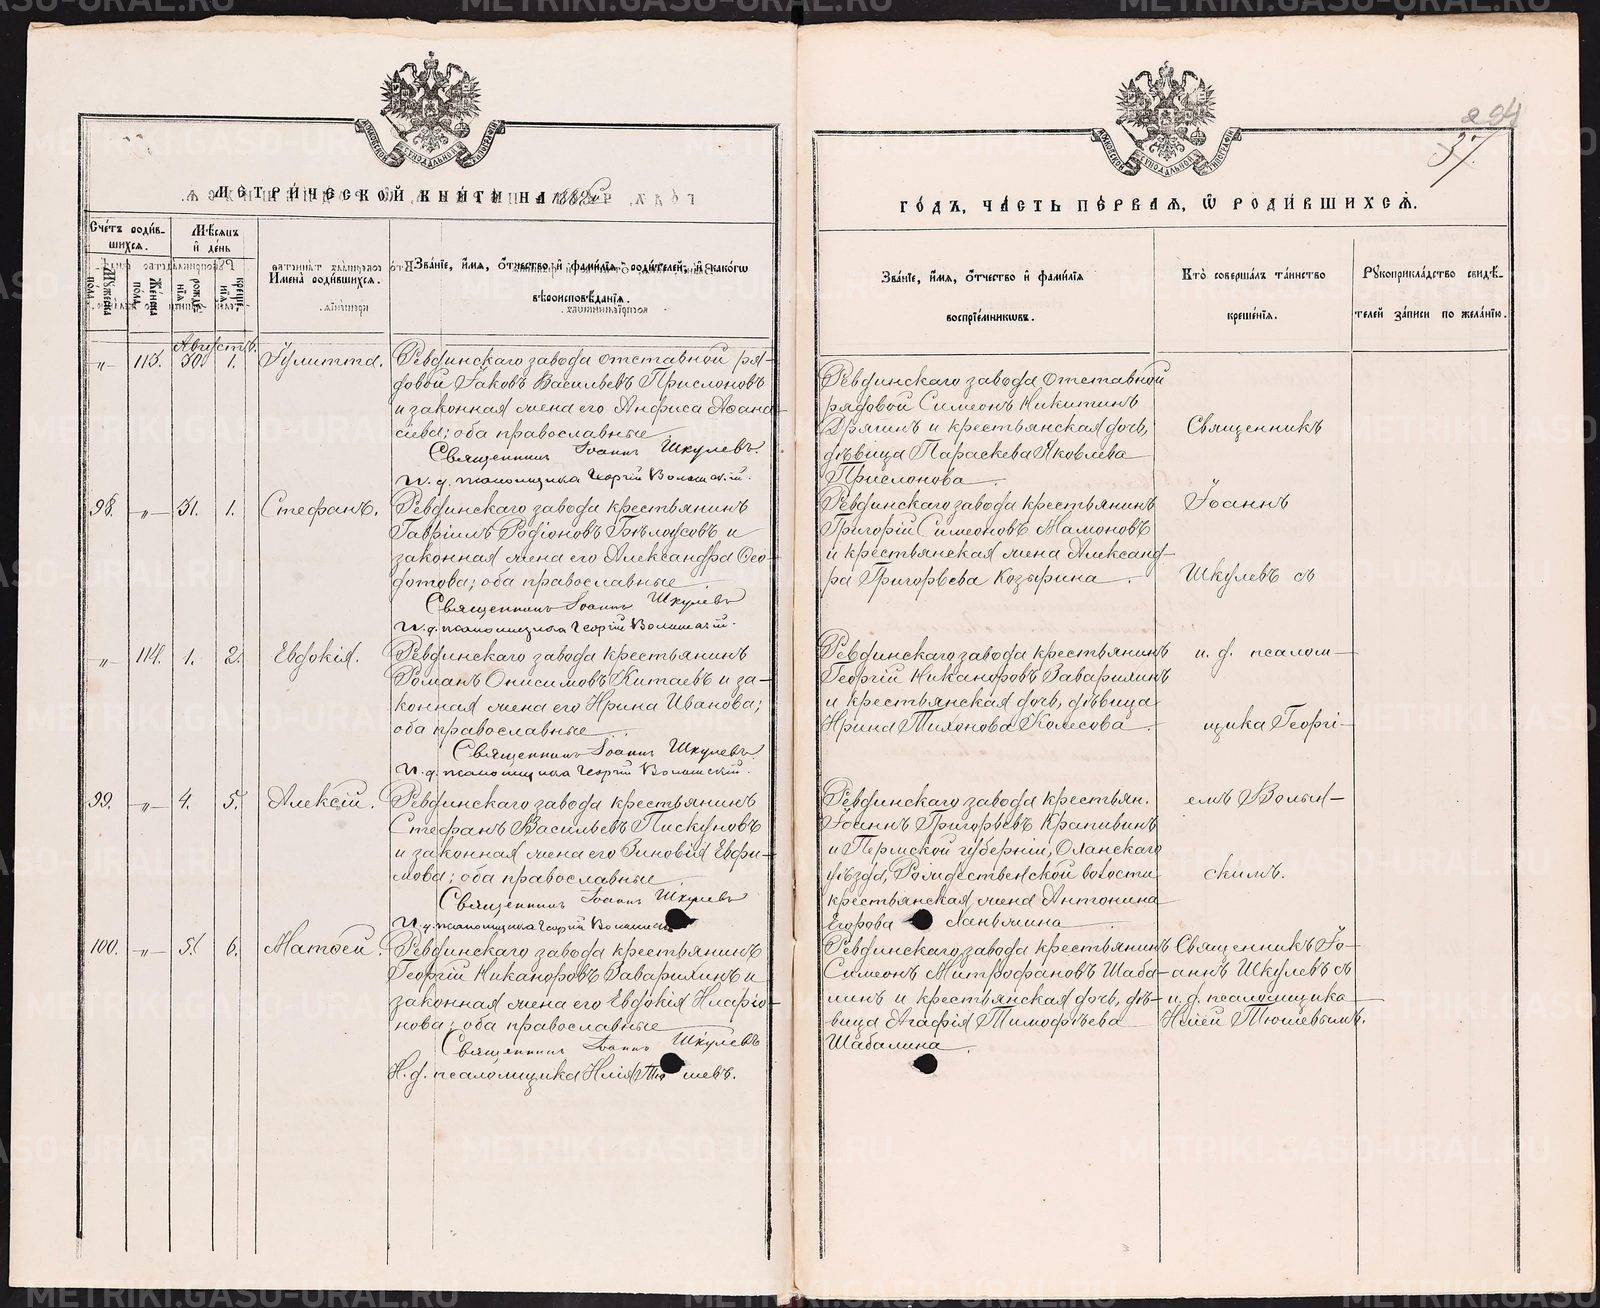 294
37
МЕТРИ́ЧЕСКОЙ КНИ́ГИ НА 1885
ГО́ДЪ, ЧА́СТЬ ПЕ́РВАЯ, Ѡ РОДИ́ВШИХСЯ.
Сче́тъ роди́в-
шихся.
Мѣсяцъ
и́ де́нь
Му́жеска
пола.
Же́нска
пола.
рожде́-
нїя.
креще́-
нїя.
И́мена роди́вшихся.
Зва́нїе, и́мя, о́тчество и́ фами́лїя роди́телей, и́ како́гѡ
вѣроисповѣ́данїя.
Зва́нїе, и́мя, о́тчество и́ фами́лїя
воспрїе́мникѡвъ.
Кто̀ соверша́лъ та́инство
креще́нїя.
Рꙋкоприкла́дство свидѣ́-
телей за́писи по жела́нїю.
Августъ.
„ 113. 30. 1. Іулитта.
Ревдинскаго завода отставной ря-
довой Іаковъ Васильевъ Прислоновъ
и законная жена его Анфиса Аѳана-
сіева; оба православные
Священникъ Іоаннъ Шкулевъ.
И. д. псаломщика Георгій Волынскій.
Ревдинскаго завода отставной
рядовой Симеонъ Никитинъ
Дрягинъ и крестьянская дочь,
дѣвица Параскева Яковлева
Прислонова.
Священникъ
98. „ 31. 1. Стефанъ.
Ревдинскаго завода крестьянинъ
Гавріилъ Родіоновъ Бѣлоусовъ и
законная жена его Александра Ѳео-
дотова; оба православные
Священникъ Іоаннъ Шкулевъ
И. д. псаломщика Георгій Волынскій.
Ревдинскаго завода крестьянинъ
Григорій Симеоновъ Мамоновъ
и крестьянская жена Александ-
ра Григорьева Козырина.
Іоаннъ
Шкулевъ съ
„ 114. 1. 2. Евдокія.
Ревдинскаго завода крестьянинъ
Романъ Онисимовъ Китаевъ и за-
конная жена его Ирина Иванова;
оба православные
Священникъ Іоаннъ Шкулевъ
И. д. псаломщика Георгій Волынскій.
Ревдинскаго завода крестьянинъ
Георгій Никаноровъ Заварихинъ
и крестьянская дочь, дѣвица
Ирина Тихонова Колесова.
и. д. псалом-
щика Георгі-
99. „ 4. 5. Алексій.
Ревдинскаго завода крестьянинъ
Стефанъ Васильевъ Пискуновъ
и законная жена его Зиновія Евфи-
мова; оба православные
Священникъ Іоаннъ Шкулевъ
И. д. псаломщика Георгій Волынскій
Ревдинскаго завода крестьян.
Іоаннъ Григорьевъ Крапивинъ
и Пермской губерніи, Оханскаго
уѣзда, Рождественской волости
крестьянская жена Антонина
Егорова Ланьжина
емъ Волын-
скимъ.
100. „ 5. 6. Матѳей.
Ревдинскаго завода крестьянинъ
Георгій Никаноровъ Заварихинъ и
законная жена его Евдокія Иларіо-
нова; оба православные
Священникъ Іоаннъ Шкулевъ
И. д. псаломщика Илія Тюшевъ.
Ревдинскаго завода крестьянинъ
Симеонъ Митрофановъ Шаба-
линъ и крестьянская дочь, дѣ-
вица Агафія Тимофѣева
Шабалина.
Священникъ Іо-
аннъ Шкулевъ съ
и. д. псаломщика
Иліей Тюшевымъ.
METRIKI.GASO-URAL.RU